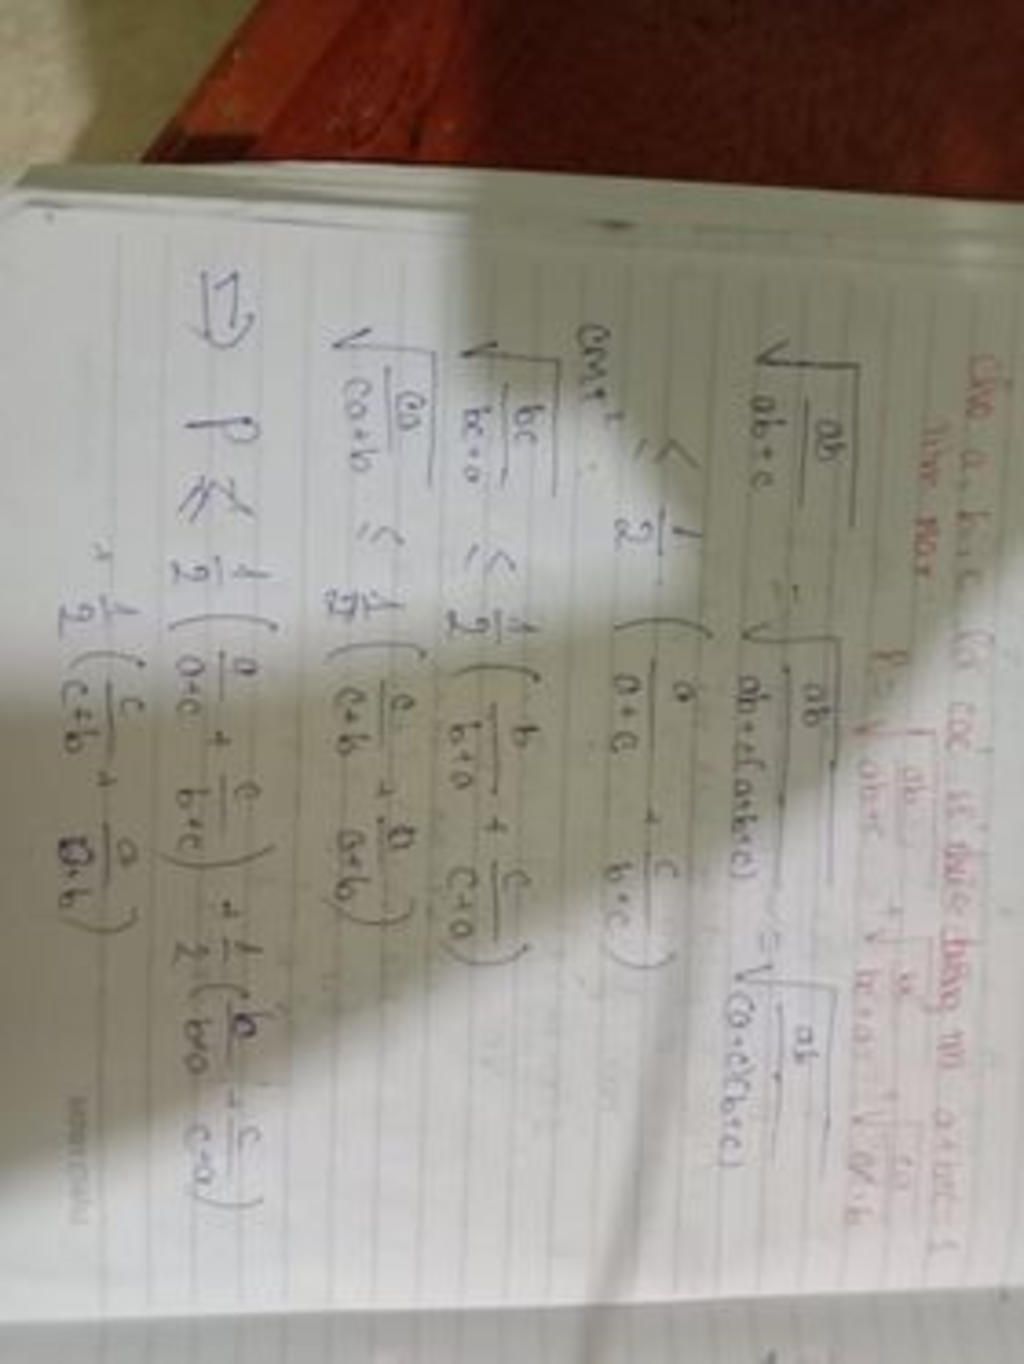 Cho a, b, c là các số thực dương t/m a+b+c=1
tìm max
P = √(ab/(ab+c)) + √(bc/(bc+a)) + √(ca/(ca+b))
√(ab/(ab+c)) = √(ab/(ab+c(a+b+c))) = √(ab/((a+c)(b+c)))
≤ 1/2 (a/(a+c) + c/(b+c))
CMTT
√(bc/(bc+a)) ≤ 1/2 (b/(b+a) + c/(c+a))
√(ca/(ca+b)) ≤ 1/2 (c/(c+b) + a/(a+b))
⇒ P ≤ 1/2 (a/(a+c) + c/(b+c)) + 1/2 (b/(b+a) + c/(c+a))
+ 1/2 (c/(c+b) + a/(a+b))